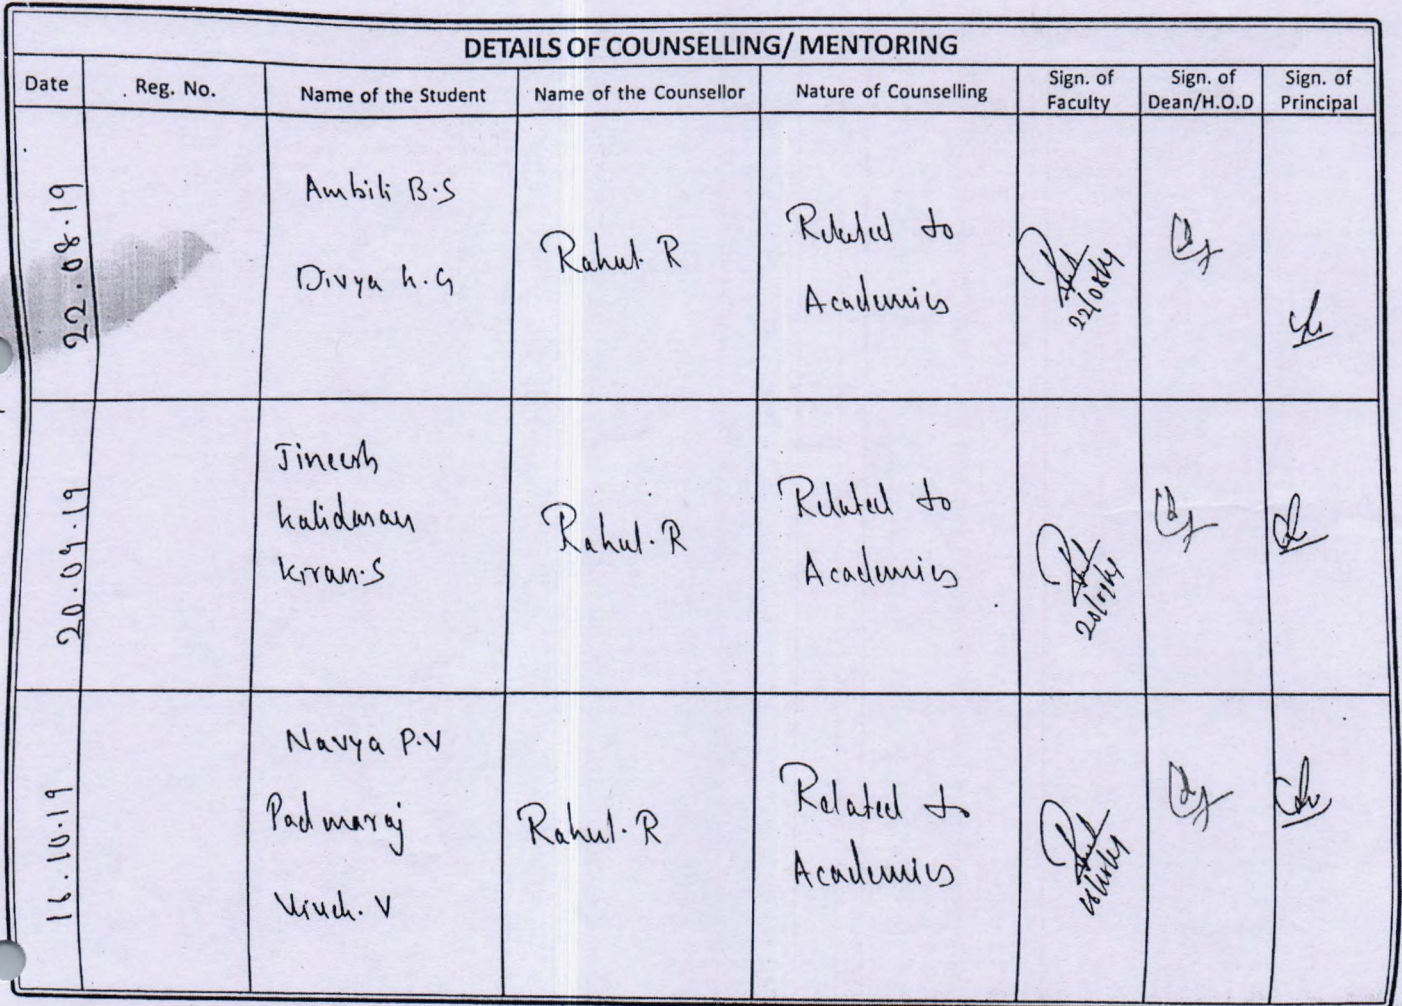 DETAILS OF COUNSELLING/ MENTORING
Date Reg. No. Name of the Student Name of the Counsellor Nature of Counselling Sign. of Faculty Sign. of Dean/H.O.D Sign. of Principal
22.08.19
Ambili B.S
Divya K.G
Rahul R
Related to
Academics
22/08/19
20.09.19
Jineesh
Kalidasan
Kiran.S
Rahul.R
Related to
Academics
16.10.19
Navya P.V
Padmaraj
V
Rahul.R
Related to
Academics